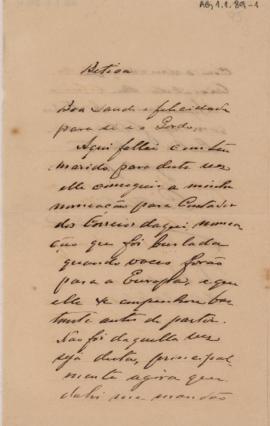 AG,1.1.89-1
Boa saude e felicidade
para si e o Gordo.
Aqui fallei com teu
marido para desta vez
elle conseguir a minha
nomeação para Contador
dos Correios daqui nomea
ção que foi burlada
quando voces forão
para a Europa, e que
elle se empenhou bas
tante antes de partir.
Não foi daquella vez
seja desta, principal-
mente agora que
dahi me mandão